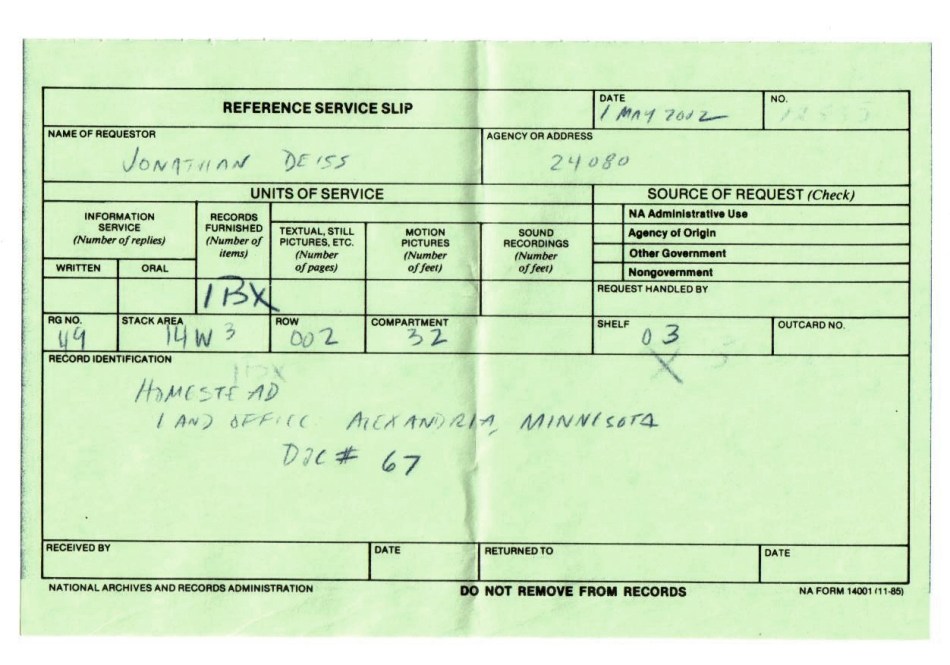 REFERENCE SERVICE SLIP
DATE
1 MAY 2002
NO.
NAME OF REQUESTOR
JONATHAN DEISS
AGENCY OR ADDRESS
24080
UNITS OF SERVICE
SOURCE OF REQUEST (Check)
INFORMATION SERVICE (Number of replies)
RECORDS FURNISHED (Number of items)
TEXTUAL, STILL PICTURES, ETC. (Number of pages)
MOTION PICTURES (Number of feet)
SOUND RECORDINGS (Number of feet)
NA Administrative Use
Agency of Origin
Other Government
Nongovernment
WRITTEN
ORAL
1 BX
REQUEST HANDLED BY
RG NO.
49
STACK AREA
14W 3
ROW
002
COMPARTMENT
32
SHELF
03
OUTCARD NO.
RECORD IDENTIFICATION
1BX
X 3
HOMESTEAD
LAND OFFICE ALEXANDRIA, MINNISOTA
DOC # 67
RECEIVED BY
DATE
RETURNED TO
DATE
NATIONAL ARCHIVES AND RECORDS ADMINISTRATION
DO NOT REMOVE FROM RECORDS
NA FORM 14001 (11-85)